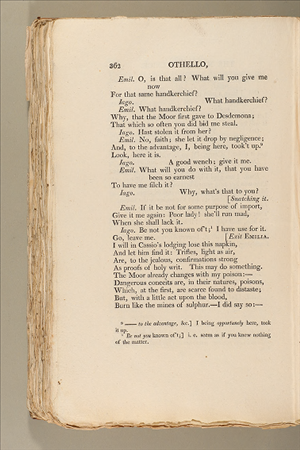 362 OTHELLO,
Emil. O, is that all? What will you give me
now
For that same handkerchief?
Iago. What handkerchief?
Emil. What handkerchief?
Why, that the Moor first gave to Desdemona;
That which so often you did bid me steal.
Iago. Hast stolen it from her?
Emil. No, faith; she let it drop by negligence;
And, to the advantage, I, being here, took't up.
Look, here it is.
Iago. A good wench; give it me.
Emil. What will you do with it, that you have
been so earnest
To have me filch it?
Iago. Why, what's that to you?
[Snatching it.
Emil. If it be not for some purpose of import,
Give it me again: Poor lady! she'll run mad,
When she shall lack it.
Iago. Be not you known of't; I have use for it.
Go, leave me. [Exit EMILIA.
I will in Cassio's lodging lose this napkin,
And let him find it: Trifles, light as air,
Are, to the jealous, confirmations strong
As proofs of holy writ. This may do something.
The Moor already changes with my poison:—
Dangerous conceits are, in their natures, poisons,
Which, at the first, are scarce found to distaste;
But, with a little act upon the blood,
Burn like the mines of sulphur.—I did say so:—
— to the advantage, &c.] I being opportunely here, took
it up.
Be not you known of't;] i. e. seem as if you knew nothing
of the matter.